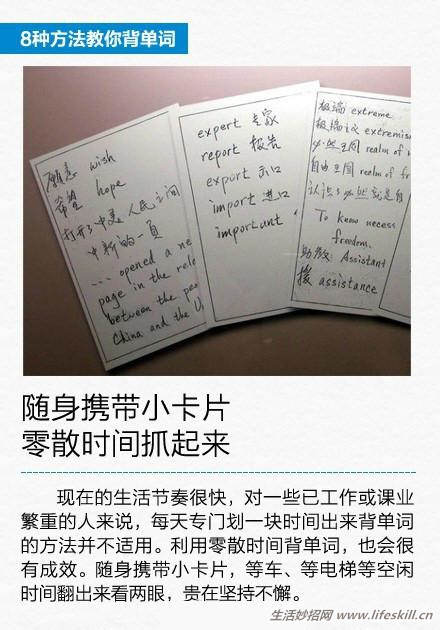 8种方法教你背单词
愿意 wish
希望 hope
打开了中美人民之间
中新的一頁
... opened a ne
page in the rela
between the peo
China and the U
expert 专家
report 报告
export 出口
import 进口
important
极端 extreme
极端主义 extremis
必然王国 realm of
自由王国 realm of fr
认识了必然就是自
To know necess
freedom.
助教: Assistant
援 assistance
随身携带小卡片
零散时间抓起来
现在的生活节奏很快，对一些已工作或课业
繁重的人来说，每天专门划一块时间出来背单词
的方法并不适用。利用零散时间背单词，也会很
有成效。随身携带小卡片，等车、等电梯等空闲
时间翻出来看两眼，贵在坚持不懈。
生活妙招网 www.lifeskill.cn